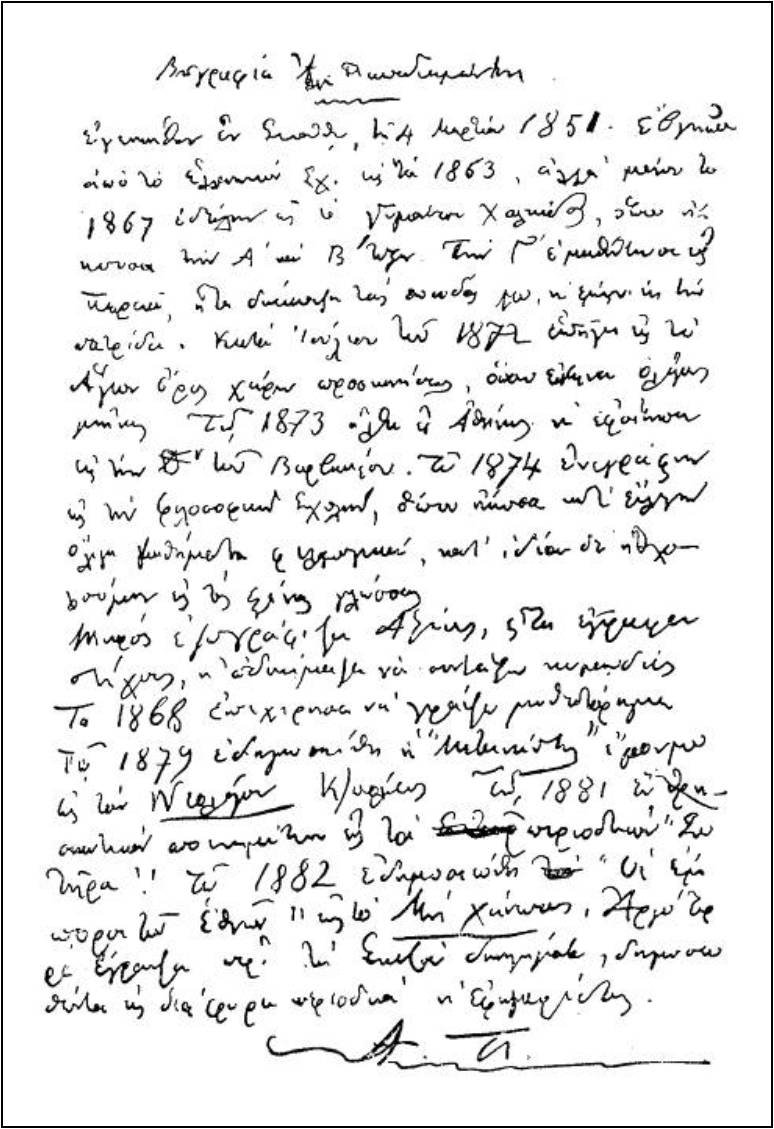 Βιογραφία Ἀλ. Παπαδιαμάντη
Ἐγεννήθην ἐν Σκιάθῳ, τῇ 4 Μαρτίου 1851. Ἐβγῆκα
ἀπὸ τὸ ἑλληνικὸν Σχ. εἰς τὰ 1863, ἀλλὰ μόνον τῷ
1867 ἐστάλην εἰς τὸ Γυμνάσιον Χαλκίδος, ὅπου ἤ-
κουσα τὴν Α΄ καὶ Β΄ τάξιν. Τὴν Γ΄ ἐμαθήτευσα εἰς
Πειραιᾶ, εἶτα διέκοψα τὰς σπουδάς μου, κ' ἔμεινα εἰς τὴν
πατρίδα. Κατὰ Ἰούλιον τοῦ 1872 ἐπῆγα εἰς τὸ
Ἅγιον Ὄρος χάριν προσκυνήσεως, ὅπου ἔμεινα ὀλίγους
μῆνας. Τῷ 1873 ἦλθα εἰς Ἀθήνας κ' ἐφοίτησα
εἰς τὴν Δ΄ τοῦ Βαρβακείου. Τῷ 1874 ἐνεγράφην
εἰς τὴν Φιλοσοφικὴν Σχολήν, ὅπου ἤκουα κατ' ἐκλογὴν
ὀλίγα μαθήματα φιλολογικά, κατ' ἰδίαν δὲ ἠσχο-
λούμην εἰς τὰς ξένας γλώσσας
Μικρὸς ἐζωγράφιζα Ἁγίους, εἶτα ἔγραφα
στίχους, κ' ἐδοκίμαζα νὰ συντάξω κωμῳδίας
Τῷ 1868 ἐπεχείρησα νὰ γράψω μυθιστόρημα
Τῷ 1879 ἐδημοσιεύθη ἡ "Μετανάστις" ἔργον μου
εἰς τὸν Νεολόγον Κ/πόλεως Τῷ 1881 ἓν θρη-
σκευτικὸν ποιημάτιον εἰς τὸ περιοδικὸν "Σω
τῆρα". Τῷ 1882 ἐδημοσιεύθη "Οἱ ἔμ-
ποροι τῶν Ἐθνῶν" εἰς τὸ Μὴ χάνεσαι. Ἀργότερ
α ἔγραψα περὶ τὰ ἑκατὸν διηγήματα, δημοσιευ
θέντα εἰς διάφορα περιοδικὰ κ' ἐφημερίδας.
Α. Π.